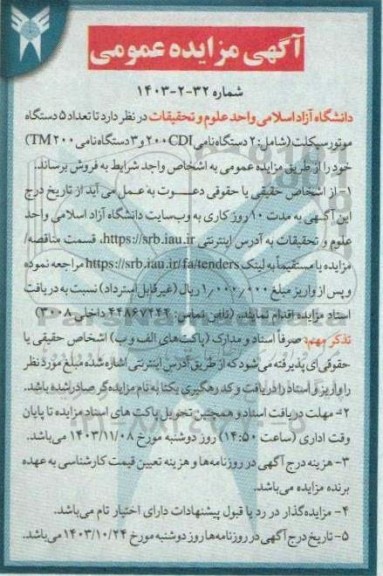 آگهی مزایده عمومی
شماره ۳۲-۲-۱۴۰۳
دانشگاه آزاد اسلامی واحد علوم و تحقیقات در نظر دارد تا تعداد ۵ دستگاه
موتورسیکلت (شامل: ۲ دستگاه نامی ۲۰۰CDI و ۳ دستگاه نامی TM۲۰۰)
خود را از طریق مزایده عمومی به اشخاص واجد شرایط به فروش برساند.
۱- از اشخاص حقیقی یا حقوقی دعوت به عمل می آید از تاریخ درج
این آگهی به مدت ۱۰ روز کاری به وب‌سایت دانشگاه آزاد اسلامی واحد
علوم و تحقیقات به آدرس اینترنتی https://srb.iau.ir، قسمت مناقصه/
مزایده یا مستقیماً به لینک https://srb.iau.ir/fa/tenders مراجعه نموده
و پس از واریز مبلغ ۱٫۰۰۰٫۰۰۰ ریال (غیرقابل استرداد) نسبت به دریافت
اسناد مزایده اقدام نمایند. (تلفن تماس: ۴۴۸۶۷۴۴۲ داخلی ۳۰۰۸)
تذکر مهم: صرفاً اسناد و مدارک (پاکت‌های الف و ب) اشخاص حقیقی یا
حقوقی‌ای پذیرفته می‌شود که از طریق آدرس اینترنتی اشاره شده مبلغ مورد نظر
را واریز و اسناد را دریافت و کد رهگیری یکتا به نام مزایده‌گر صادر شده باشد.
۲- مهلت دریافت اسناد و همچنین تحویل پاکت های اسناد مزایده تا پایان
وقت اداری (ساعت ۱۴:۵۰) روز دوشنبه مورخ ۱۴۰۳/۱۱/۰۸ می‌باشد.
۳- هزینه درج آگهی در روزنامه‌ها و هزینه تعیین قیمت کارشناسی به عهده
برنده مزایده می‌باشد.
۴- مزایده‌گذار در رد یا قبول پیشنهادات دارای اختیار تام می‌باشد.
۵- تاریخ درج آگهی در روزنامه‌ها روز دوشنبه مورخ ۱۴۰۳/۱۰/۲۴ می‌باشد.